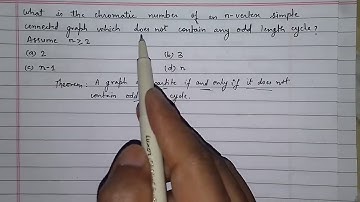 What is the chromatic number of an n-vertex simple
connected graph which does not contain any odd length cycle?
Assume n ≥ 2
(a) 2 (b) 3
(c) n-1 (d) n
Theorem: A graph is bipartite if and only if it does not
contain odd cycle.